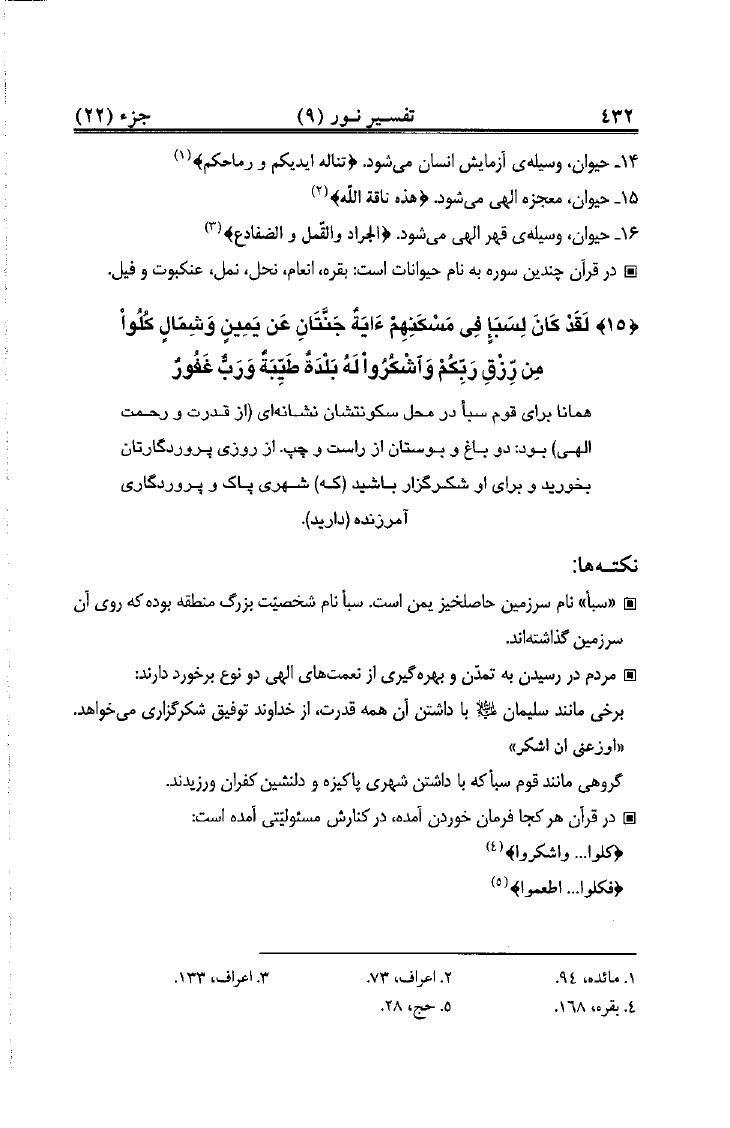 ٤٣٢ تفسیر نور (٩) جزء (٢٢)
١٤ـ حیوان، وسیله‌ی آزمایش انسان می‌شود. ﴿تناله ایدیکم و رماحکم﴾(١)
١٥ـ حیوان، معجزه الهی می‌شود. ﴿هذه ناقة الله﴾(٢)
١٦ـ حیوان، وسیله‌ی قهر الهی می‌شود. ﴿الجراد والقمّل و الضفادع﴾(٣)
▣ در قرآن چندین سوره به نام حیوانات است: بقره، انعام، نحل، نمل، عنکبوت و فیل.
﴿١٥﴾ لَقَدْ كَانَ لِسَبَإٍ فِى مَسْكَنِهِمْ ءَايَةٌ جَنَّتَانِ عَن يَمِينٍ وَشِمَالٍ كُلُواْ
مِن رِّزْقِ رَبِّكُمْ وَٱشْكُرُواْ لَهُ بَلْدَةٌ طَيِّبَةٌ وَرَبٌّ غَفُورٌ
همانا برای قوم سبأ در محل سکونتشان نشانه‌ای (از قدرت و رحمت
الهی) بود: دو باغ و بوستان از راست و چپ. از روزی پروردگارتان
بخورید و برای او شکرگزار باشید (که) شهری پاک و پروردگاری
آمرزنده (دارید).
نکته‌ها:
▣ «سبأ» نام سرزمین حاصلخیز یمن است. سبأ نام شخصیّت بزرگ منطقه بوده که روی آن
سرزمین گذاشته‌اند.
▣ مردم در رسیدن به تمدّن و بهره‌گیری از نعمت‌های الهی دو نوع برخورد دارند:
برخی مانند سلیمان با داشتن آن همه قدرت، از خداوند توفیق شکرگزاری می‌خواهد.
«اوزعنی ان اشکر»
گروهی مانند قوم سبأ که با داشتن شهری پاکیزه و دلنشین کفران ورزیدند.
▣ در قرآن هر کجا فرمان خوردن آمده، در کنارش مسئولیّتی آمده است:
﴿کلوا... واشکروا﴾(٤)
﴿فکلوا... اطعموا﴾(٥)
١. مائده، ٩٤. ٢. اعراف، ٧٣. ٣. اعراف، ١٣٣.
٤. بقره، ١٦٨. ٥. حج، ٢٨.